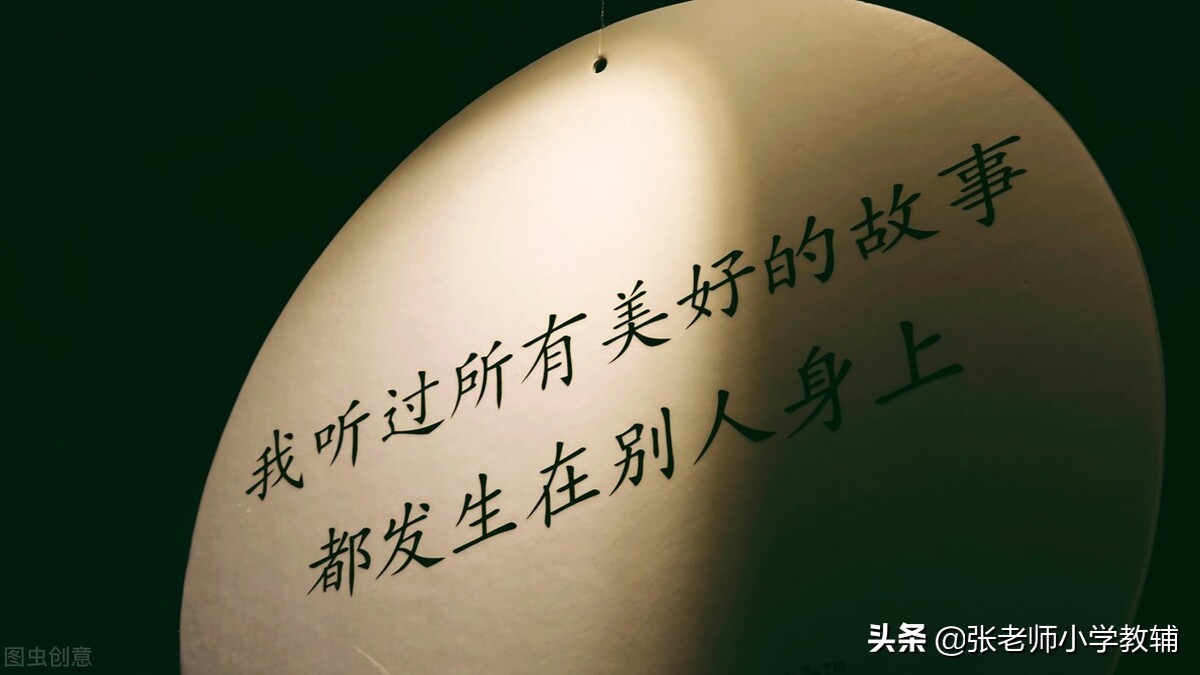 我听过所有美好的故事
都发生在别人身上
头条 @张老师小学教辅
图虫创意